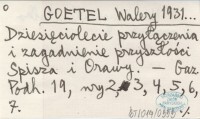 GOETEL Walery 1931...
Dziesięciolecie przyłączenia
i zagadnienie przyszłości
Spisza i Orawy. — Gaz.
Podh. 19, nry 2, 3, 4, 5, 6,
7.